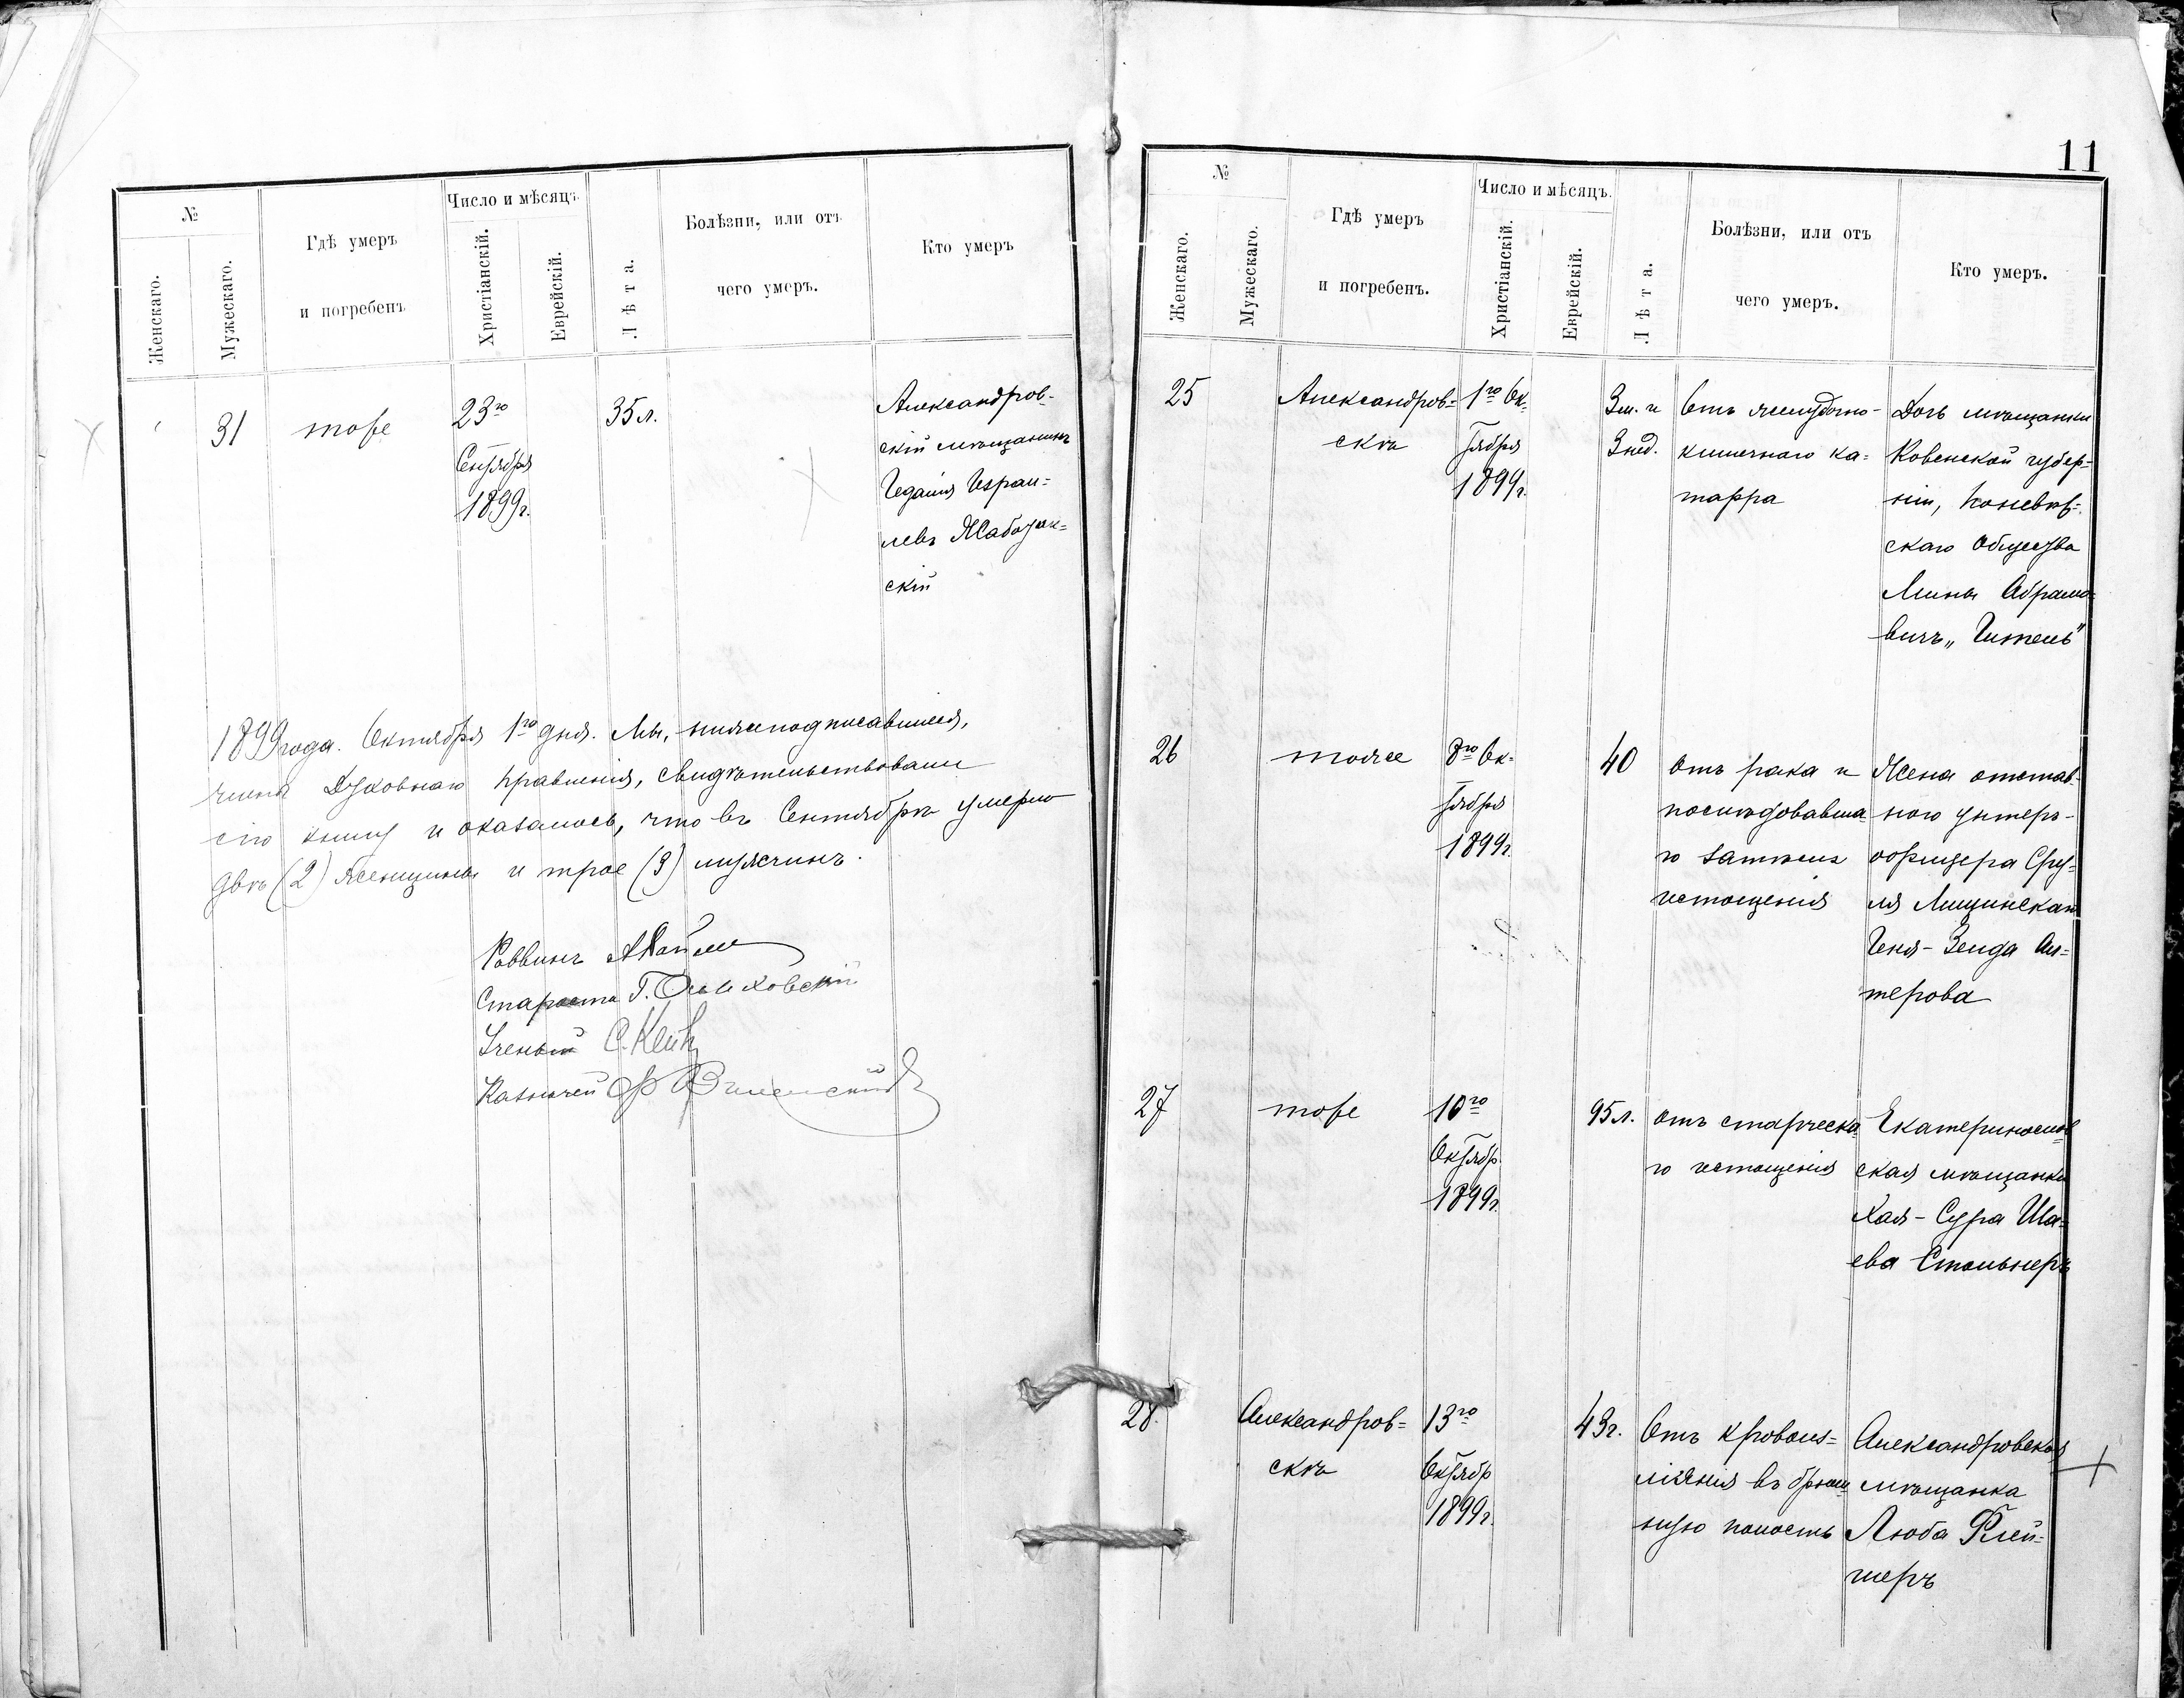 11
№
Женскаго.
Мужескаго.
Гдѣ умеръ
и погребенъ
Число и мѣсяцъ
Христіанскій.
Еврейскій.
Лѣта.
Болѣзни, или отъ
чего умеръ.
Кто умеръ
31
тоже
23го
Сентября
1899г.
35 л.
Александров-
скій мѣщанинъ
Гедалія Изран=
левъ
скій
1899 года. Октября 1го дня. Мы, нижеподписавшиеся,
члены Духовнаго Правленія, свидѣтельствовали
сію книгу и оказалось, что въ Сентябрѣ умерло
двѣ (2) женщины и трое (3) мужчинъ.
Раввинъ
Староста Г.
Ученый С.
Казначей
№
Женскаго.
Мужескаго.
Гдѣ умеръ
и погребенъ.
Число и мѣсяцъ.
Христіанскій.
Еврейскій.
Лѣта.
Болѣзни, или отъ
чего умеръ.
Кто умеръ.
25
Александров=
скъ
1го Ок=
тября
1899г.
3 м. и
3 нед.
Отъ желудочно-
кишечнаго ка=
тарра
Дочь мѣщанки
Ковенской губер=
ніи,
скаго Общества
Мины Абрамо=
вичъ
26
тоже
8го Ок=
тября
1899г.
40
отъ рака и
послѣдовавша=
го затѣмъ
истощенія
Жена отстав-
ного унтеръ-
офицера Сру=
ля Лищинскаго
Геня-Зелда Ал=
терова
27
тоже
10го
Октябр
1899г.
95 л.
отъ старческа=
го истощенія
Екатеринослав
ская мѣщанка
Хая-Сура Ша=
ева Стольнеръ
28.
Александров=
скъ
13го
Октябр
1899г.
43г.
Отъ кровоиз=
ліянія въ брюш=
ную полость
Александровская
мѣщанка
Люба Флей=
шеръ